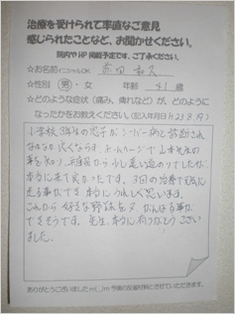 治療を受けられて率直なご意見
感じられたことなど、お聞かせください。
院内やHP掲載予定です、ご了承ください。
☆お名前イニシャルOK
☆性別 男・女 年齢 41 歳
☆どのような症状(痛み、痺れなど)が、どのように
なったかをお教えください。(記入年月日H23.8.9)
小学校3年生の息子がシーバー病と診断され
なかなか良くならず、ホームページで山本先生の
事を知り、
本当に来て良かったです。3回の治療で完治
出来る事ができ、本当にうれしく思います。
これから好きな野球を
できそうです。先生、本当に有りがとうござい
ました。
ありがとうございましたm(__)m 今後の反省材料とさせていただきます。